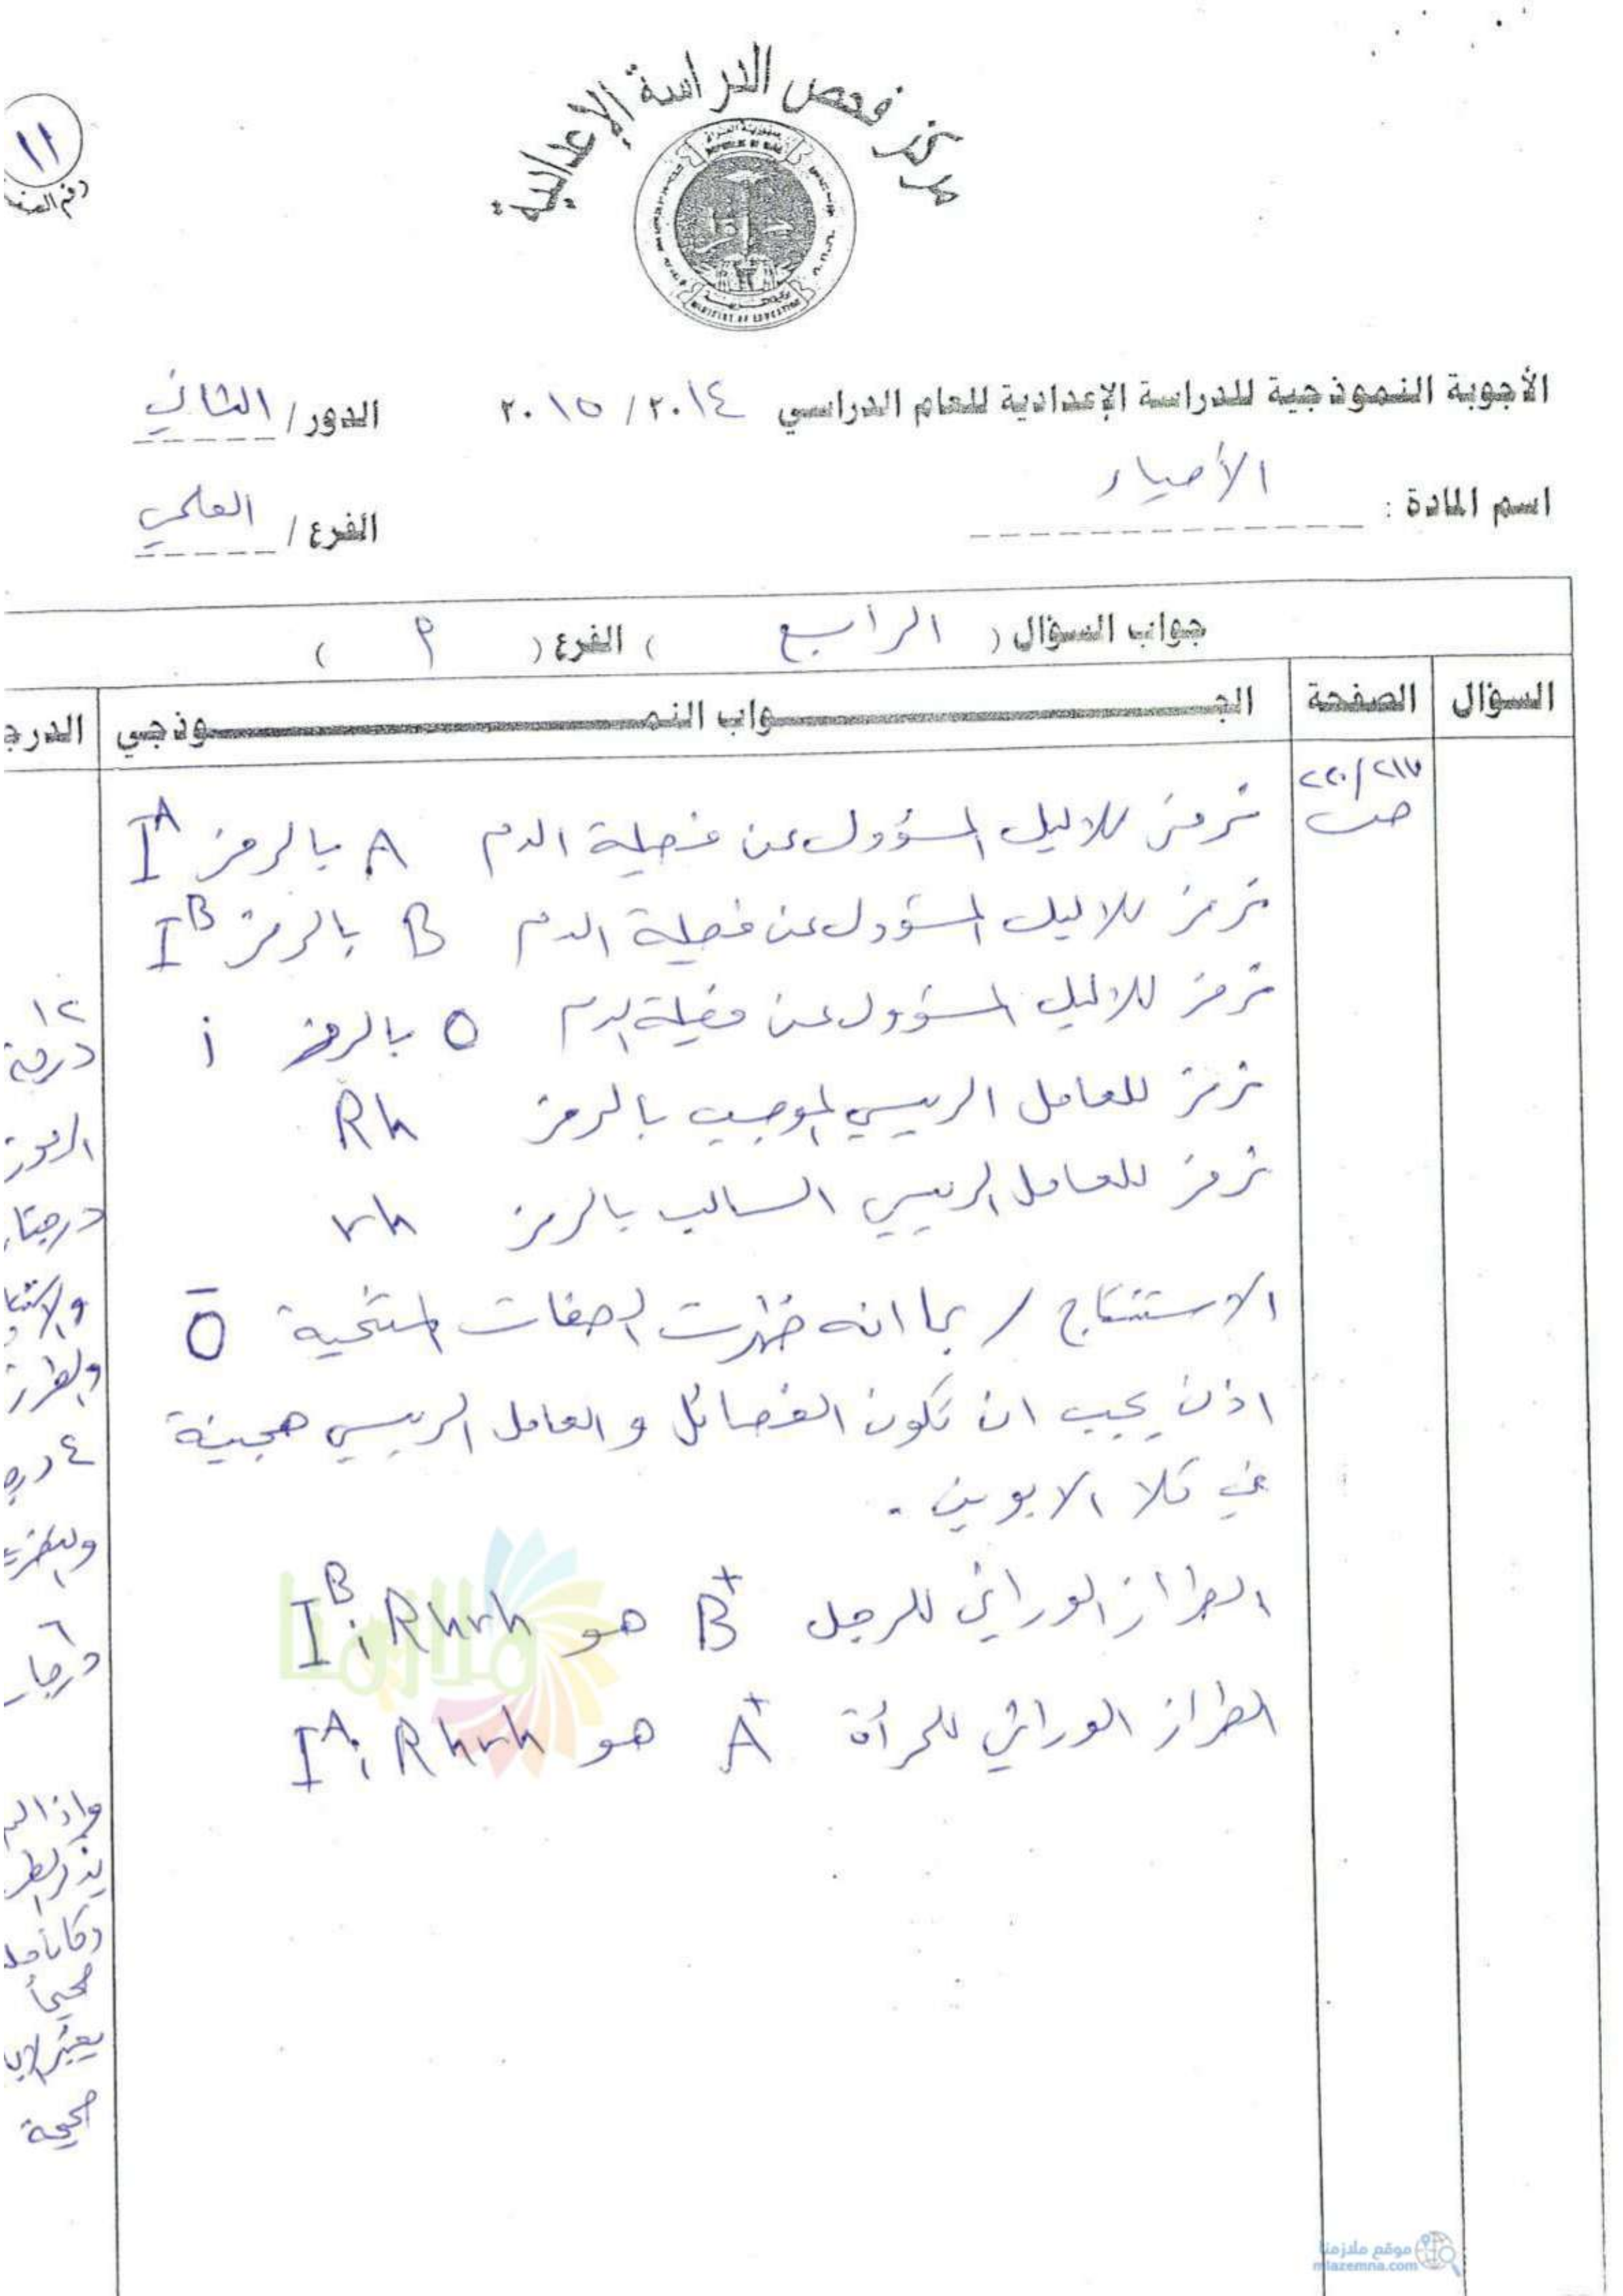 ١١
مركز فحص الدراسة الإعدادية
الأجوبة النموذجية للدراسة الإعدادية للعام الدراسي ٢٠١٤ / ٢٠١٥ الدور / الثاني
اسم المادة : الأحياء الفرع / العلمي
جواب السؤال ( الرابع ) الفرع ( أ )
السؤال الصفحة الجواب النموذجي الدرج
٢١٧ / ٢٢٠
نرمز للاليل المسؤول عن فصيلة الدم A بالرمز I^A
نرمز للاليل المسؤول عن فصيلة الدم B بالرمز I^B
نرمز للاليل المسؤول عن فصيلة الدم O بالرمز i
نرمز للعامل الريسي الموجب بالرمز Rh
نرمز للعامل الريسي السالب بالرمز rh
الاستنتاج / بما انه ظهرت الصفات المتنحية O^-
اذن يجب ان تكون الفصائل و العامل الريسي هجينة
في كلا الابوين .
الطراز الوراثي للرجل B^+ هو I^B i Rhrh
الطراز الوراثي للمرأة A^+ هو I^A i Rhrh
١٢
درجة
الرموز
٤
٦
صحيحة
ملازمنا
موقع ملازمنا
mlazemna.com